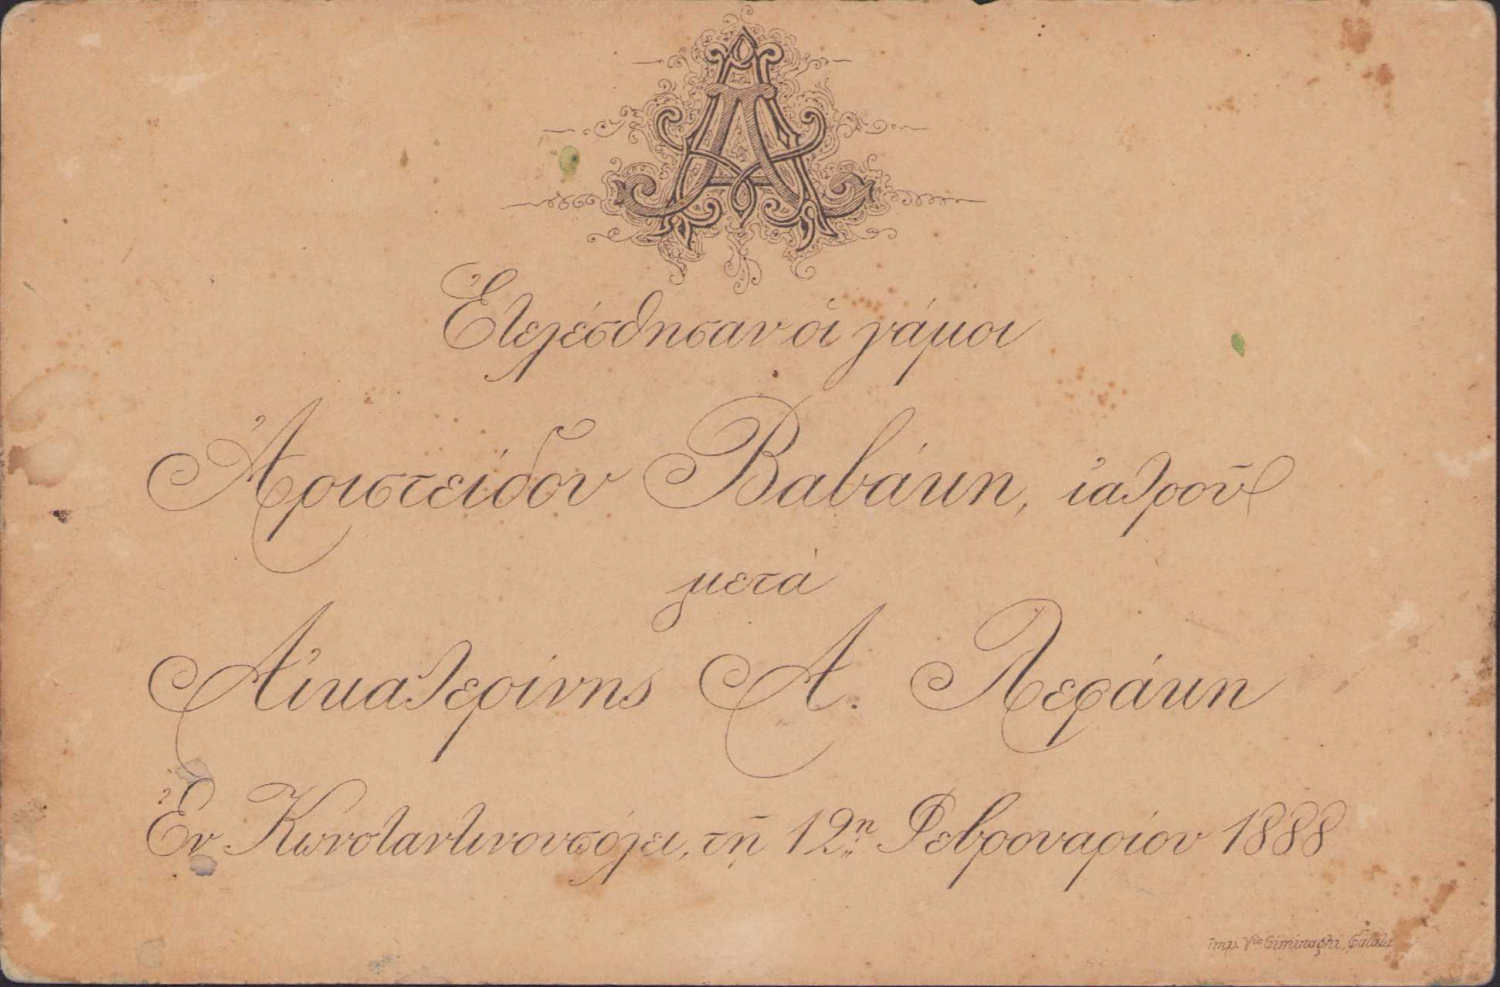 Ἐτελέσθησαν οἱ γάμοι
Ἀριστείδου Βαβάκη, ἰατροῦ
μετὰ
Αἰκατερίνης Α. Λεφάκη
Ἐν Κωνσταντινουπόλει, τῇ 12ῃ Φεβρουαρίου 1888
Imp. Vve Giminaghi, Galata